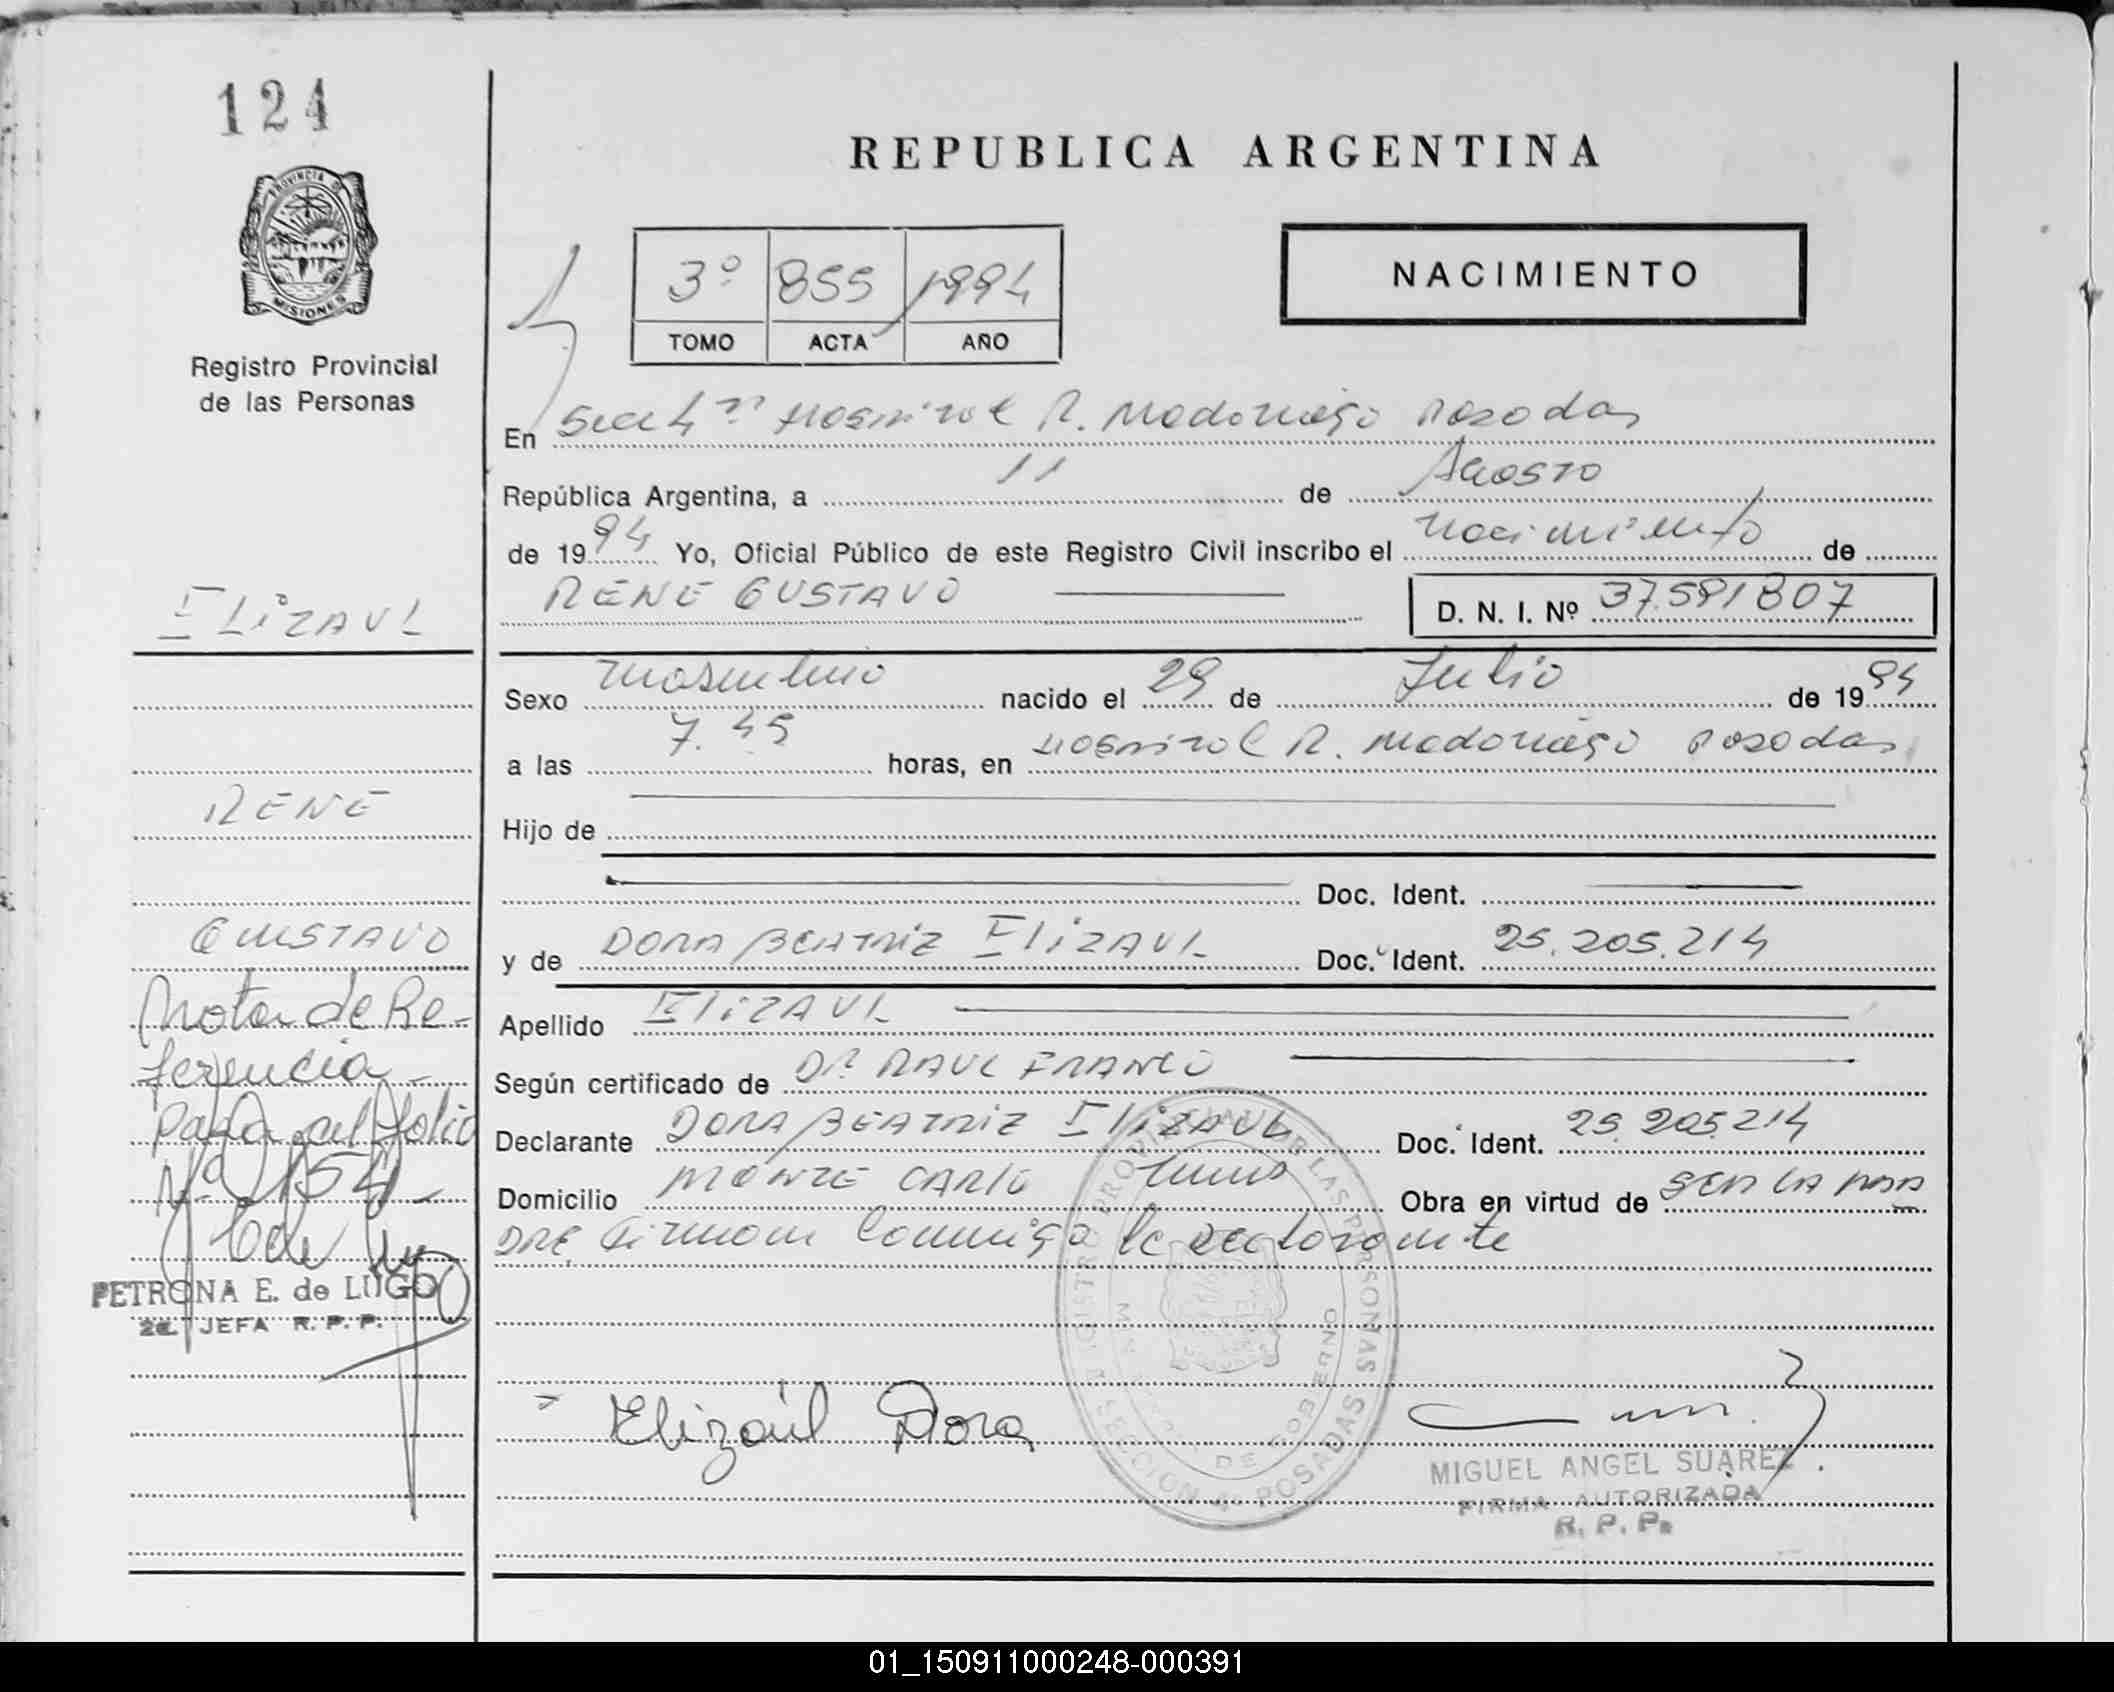 124
PROVINCIA DE
MISIONES
Registro Provincial
de las Personas
REPUBLICA ARGENTINA
3º 855 1994
TOMO ACTA AÑO
NACIMIENTO
En Secc 4ª Hospital R. Madariaga Posadas
República Argentina, a 11 de Agosto
de 1994 Yo, Oficial Público de este Registro Civil inscribo el nacimiento de
RENE GUSTAVO D. N. I. Nº 37.591807
Sexo masculino nacido el 29 de Julio de 1994
a las 7.45 horas, en Hospital R. Madariaga Posadas
Hijo de
Doc. Ident.
y de DORA BEATRIZ ELIZAUL Doc. Ident. 25.205.214
Apellido ELIZAUL
Según certificado de Dr. RAUL FRANCO
Declarante DORA BEATRIZ ELIZAUL Doc. Ident. 25.205.214
Domicilio MONTE CARLO Obra en virtud de SER LA MA
DRE Firman conmigo la declarante
Elizaúl Dora
REGISTRO PROVINCIAL DE LAS PERSONAS
SECCION 4ª POSADAS
DE GOBIERNO
MIGUEL ANGEL SUAREZ
FIRMA AUTORIZADA
R. P. P.
ELIZAUL
RENE
GUSTAVO
Nota de Re-
ferencia
Pasa al folio
Nº 154-
PETRONA E. de LUGO
2a. JEFA R. P. P.
01_150911000248-000391